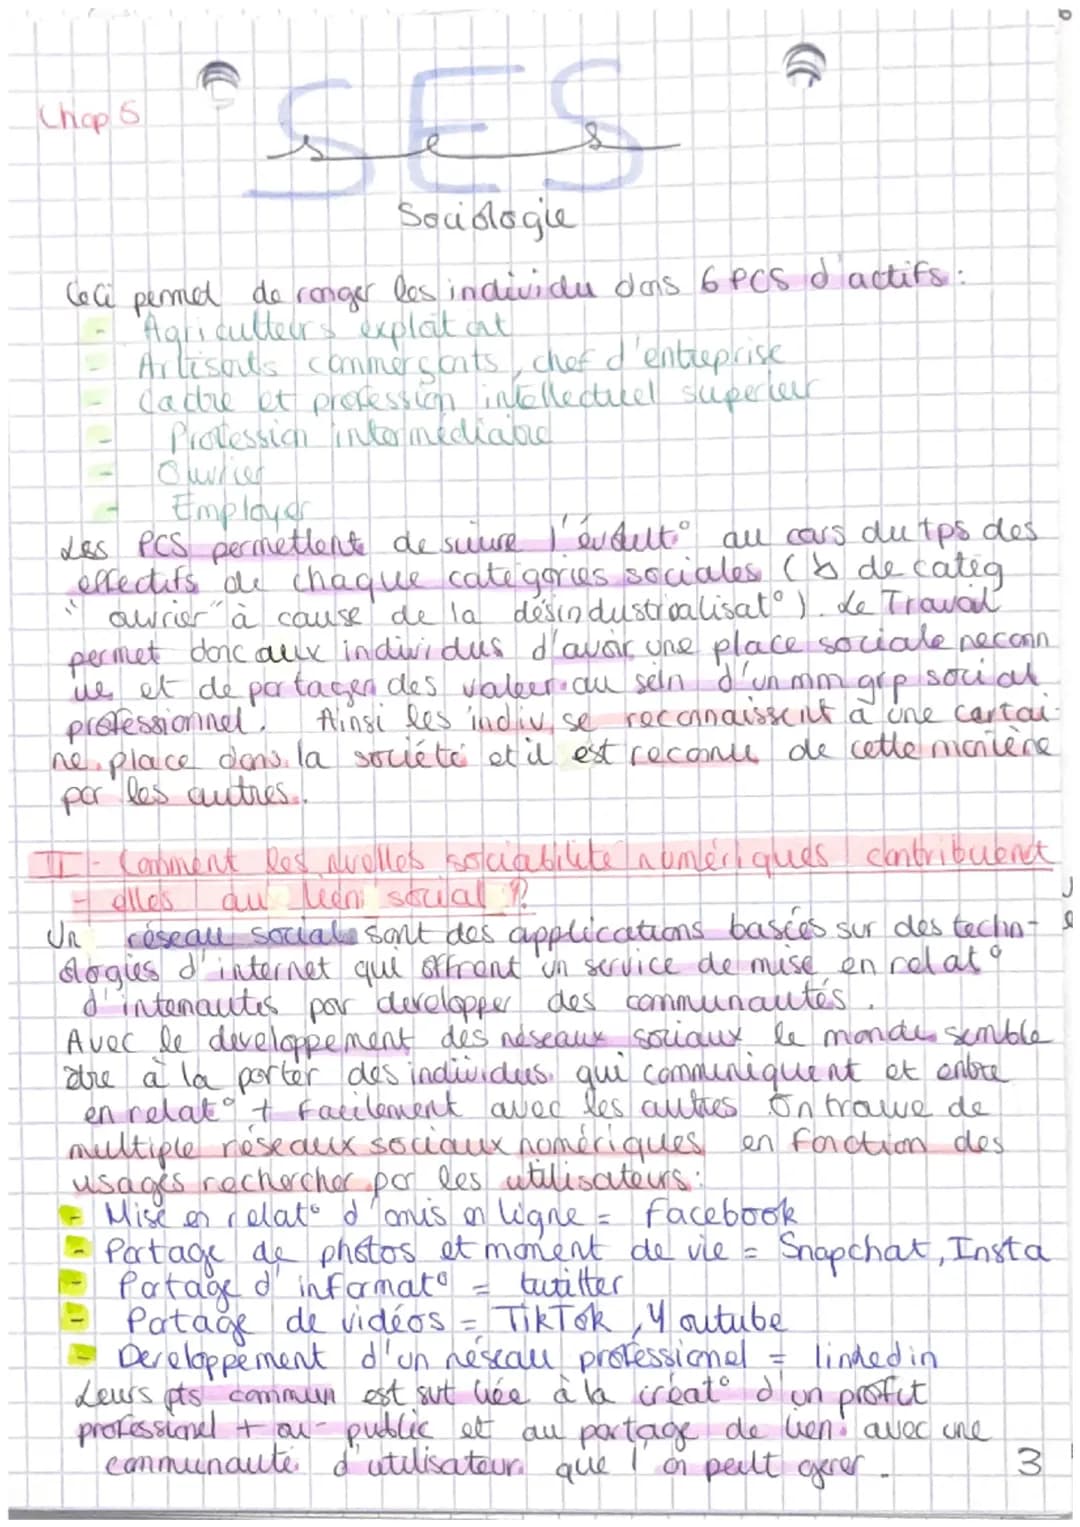 Chap 5
SES
ses
Sociologie
Ceci permet de ranger les individu dans 6 PCS d'actifs :
- Agriculteurs exploitant
- Artisants commerçants, chef d'entreprise
- Cadre et profession intellectuel superieur
- Profession intermédiaire
- Ouvrier
- Employer
Les PCS permettent de suivre l'évolut° au cors du tps des
effectifs de chaque catégories sociales (↘ de catég
"ouvrier" à cause de la désindustrialisat°). Le Travail
permet donc aux individus d'avoir une place sociale reconn
ue et de partager des valeur au sein d'un mm grp social
professionnel. Ainsi les indiv, se reconnaissent à une certai-
ne place dans la société et il est reconu de cette manière
par les autres.
II - Comment les nvelles sociabilité numériques contribuent
- elles au lien social ?
Un réseau social sont des applications basées sur des techn-
ologies d'internet qui offrent un service de mise en relat°
d'intenautes par developper des communautés.
Avec le developpement des réseaux sociaux le monde semble
être à la porter des individus qui communiquent et entre
en relat° + facilement avec les autres. On trouve de
multiple réseaux sociaux numériques en fonction des
usages rechercher par les utilisateurs :
- Mise en relat° d'amis en ligne = Facebook
- Partage de photos et moment de vie = Snapchat, Insta
- Partage d'informat° = twitter
- Partage de vidéos = TikTok, Youtube
- Developpement d'un réseau professionel = linkedin
Leurs pts commun est surt liée à la créat° d'un profit
professionel + ou - public et au partage de lien avec une
communauté d'utilisateur que l'on peut gerer.
3